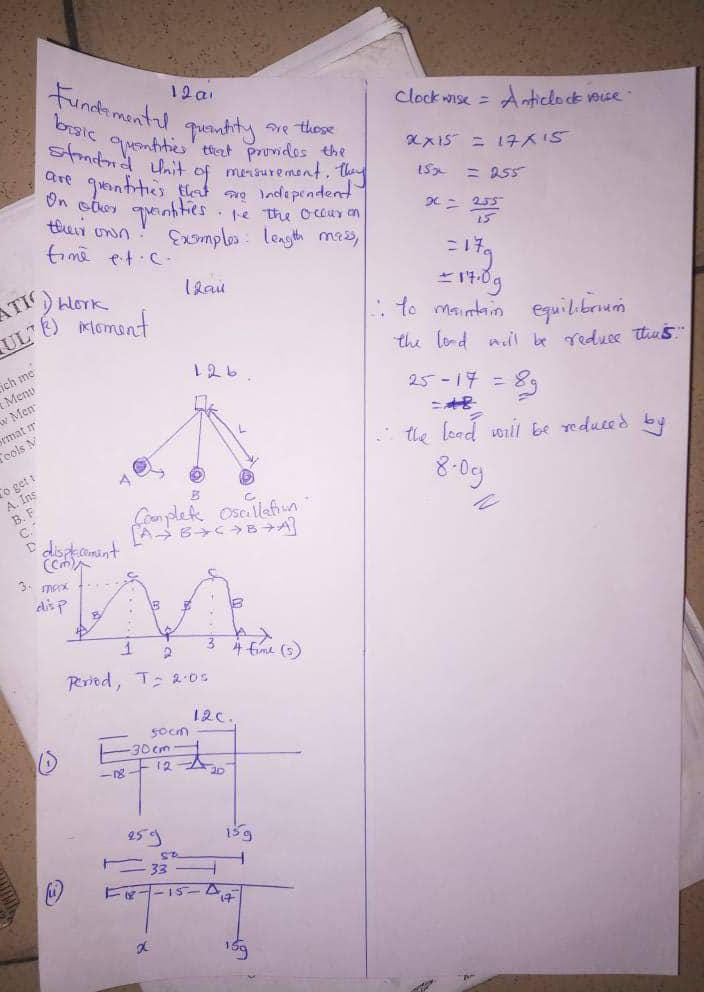 12ai
Fundamental quantity are those
basic quantities that provides the
standard Unit of measurement. They
are quantities that are independent
On other quantities. i.e The Occur on
their own. Examples: length mass,
time e.t.c.
12aii
1) Work
(2) Moment
12b.
L
A
B
C
Complete Oscillation
[A → B → C → B → A]
displacement
(cm)
max
disp
C
C
B
B
B
B
A
A
A
1
2
3
4
time (s)
Period, T = 2.0s
12c.
50cm
(i)
30cm
18
12
20
25g
15g
50
33
(ii)
18
15
17
x
15g
Clockwise = Anticlockwise.
x × 15 = 17 × 15
15x = 255
x = 255
15
= 17g
= 17.0g
∴ To maintain equilibrium
the load will be reduce thus:
25 - 17 = 8g
∴ the load will be reduced by
8.0g
ich me
t Menu
w Men
ormat m
Tools M
To get t
A. Ins
B. F
C.
D
3.